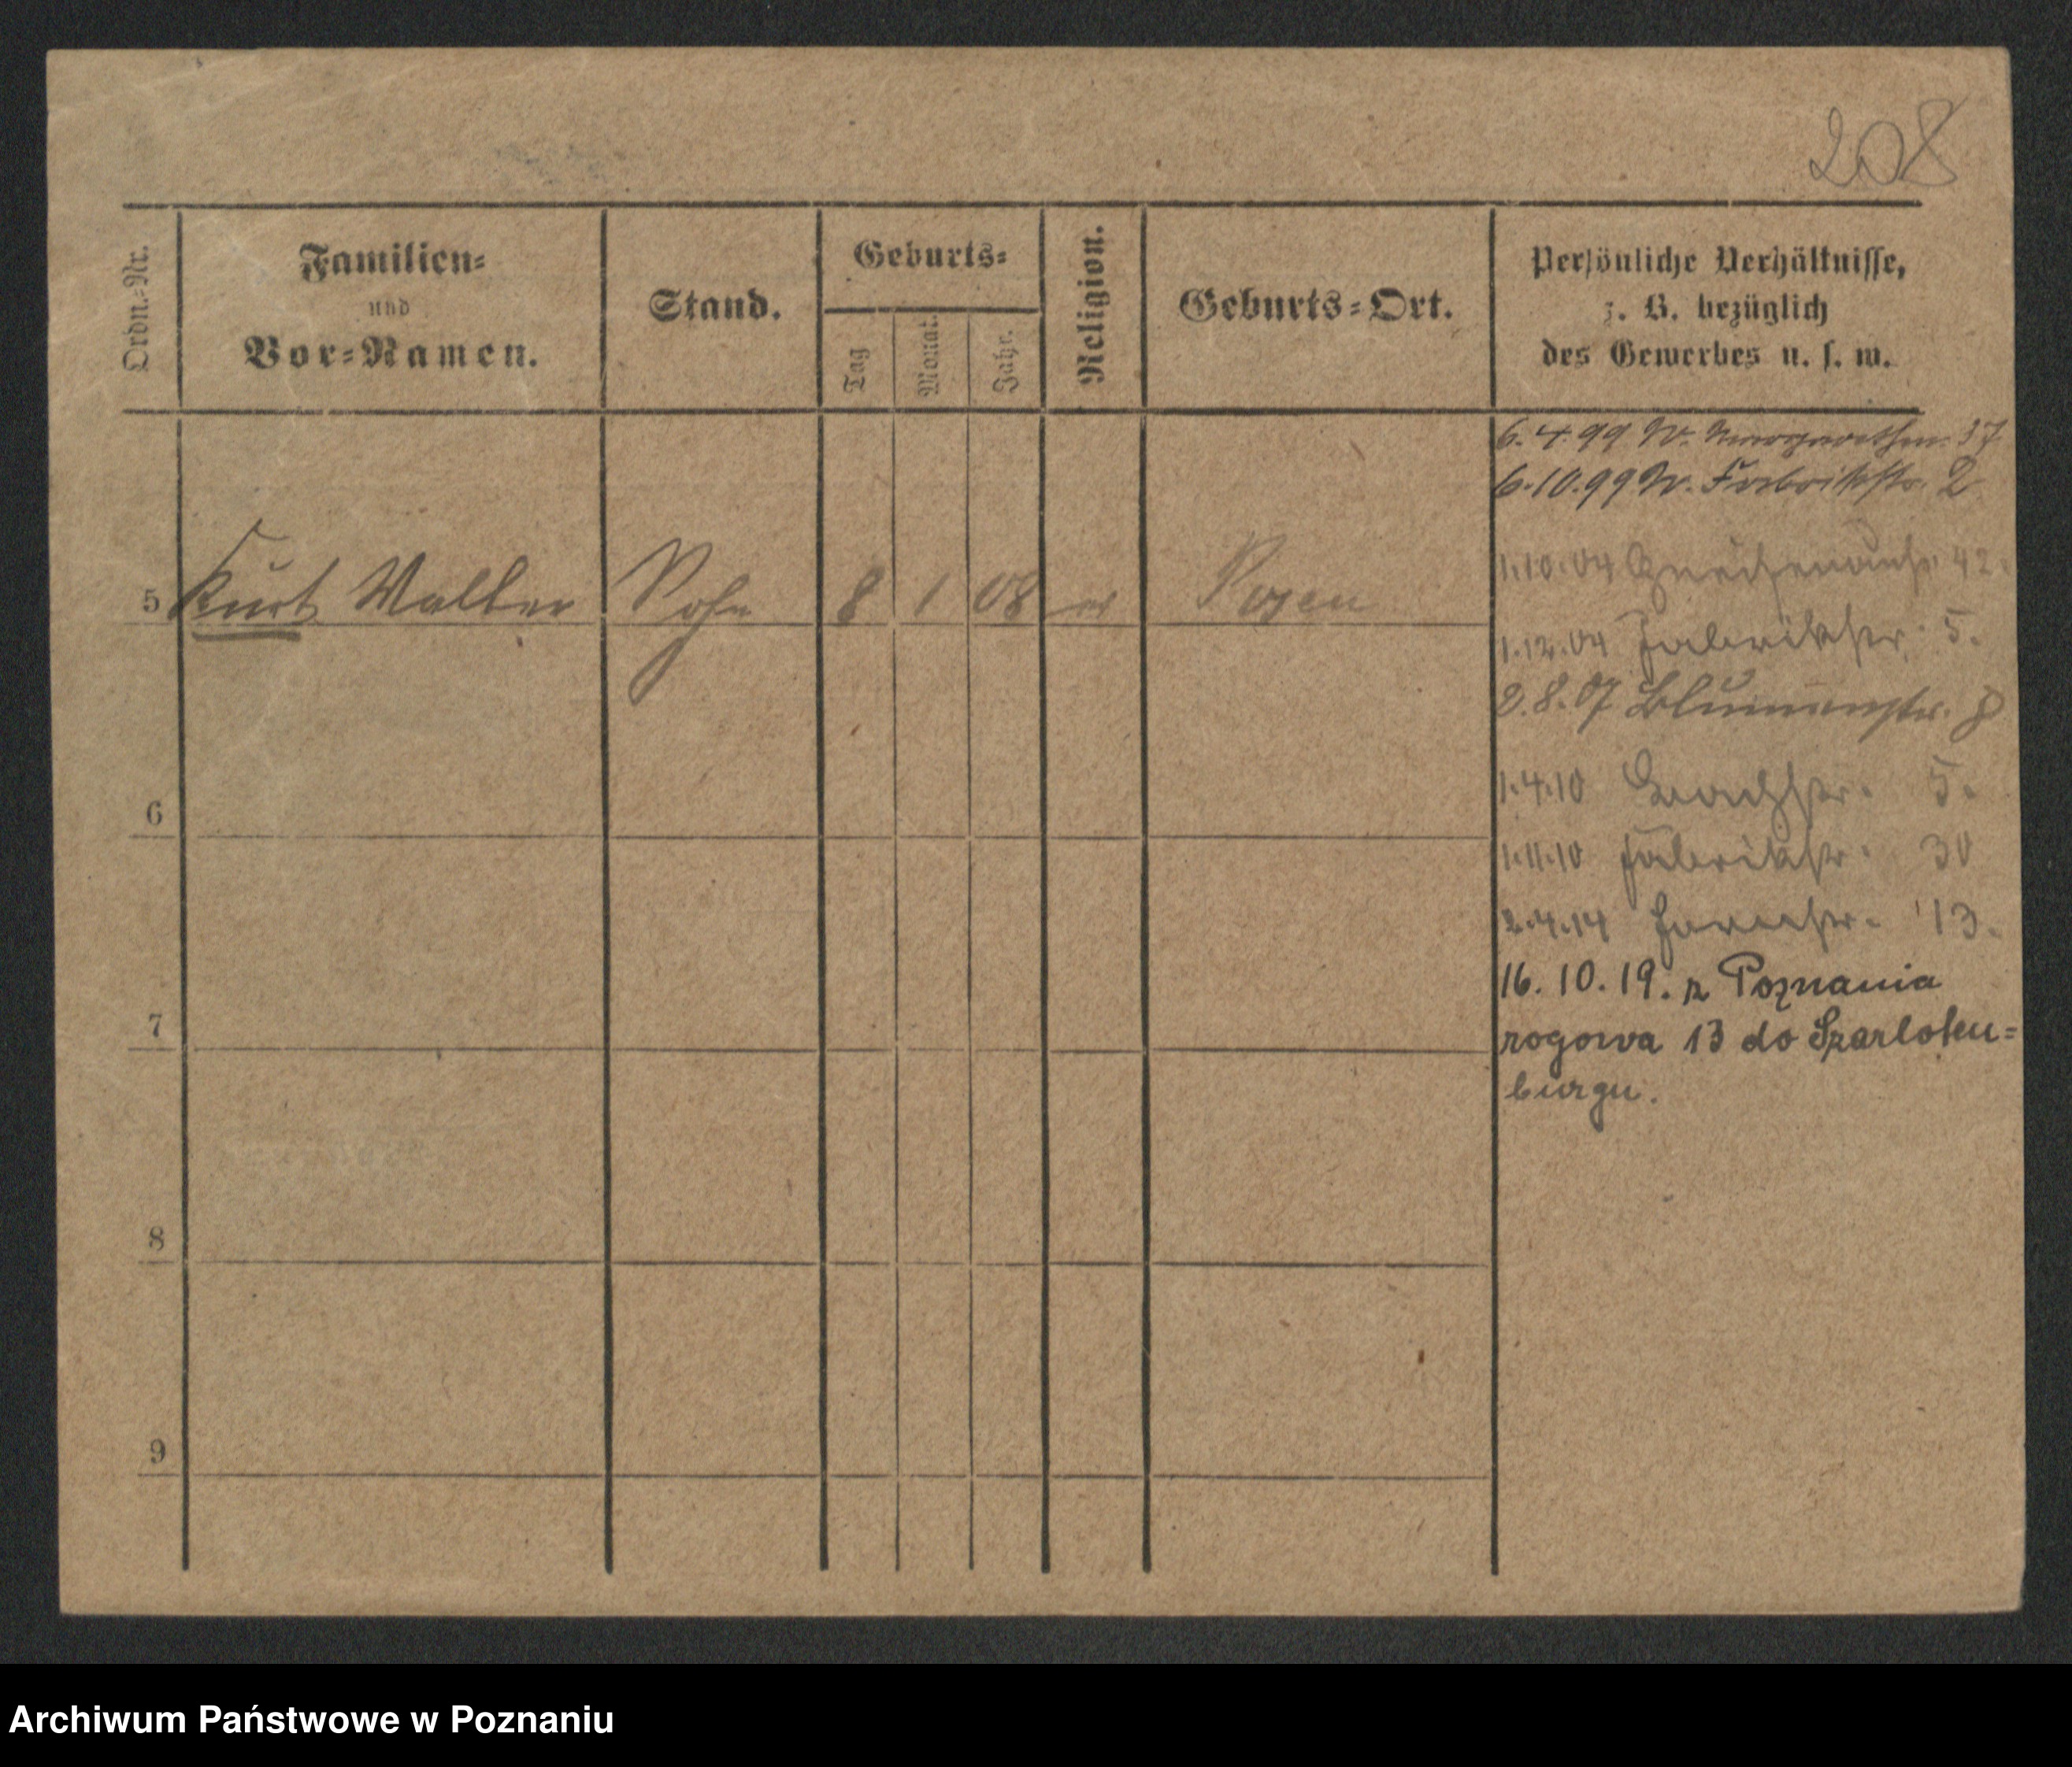 208
Ordn.-Nr.
Familien-
und
Vor-Namen.
Stand.
Geburts-
Tag
Monat.
Jahr.
Religion.
Geburts-Ort.
Persönliche Verhältnisse,
z. B. bezüglich
des Gewerbes u. s. w.
6.4.99 W. Margarethen 37
6.10.99 W. Fabrikstr. 2
1.10.04 Gneisenaustr. 42.
5 Kurt Walter Sohn 8 1 08 ev Posen
1.12.04 Fabrikstr. 5.
2.8.07 Blumenstr. 8
6
1.4.10 5.
1.11.10 Fabrikstr. 30
2.4.14 13.
16.10.19. z Poznania
7
rogowa 13 do Szarloten-
burgu.
8
9
Archiwum Państwowe w Poznaniu